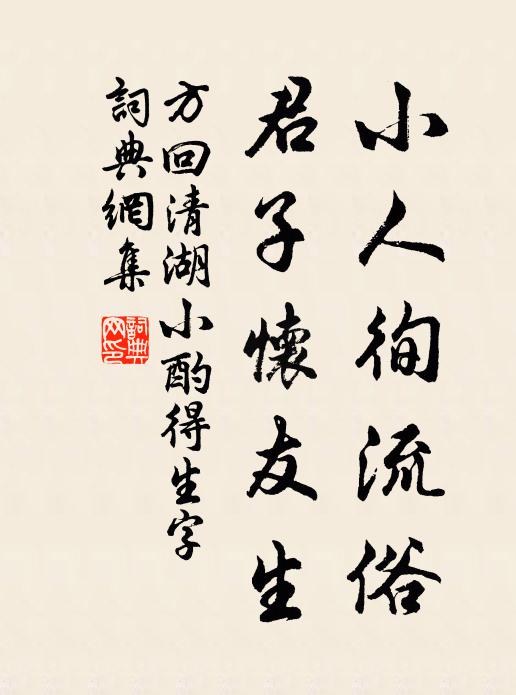 小人徇流俗
君子懷友生
方回清湖小酌得生字
詞典網集
詞典网印